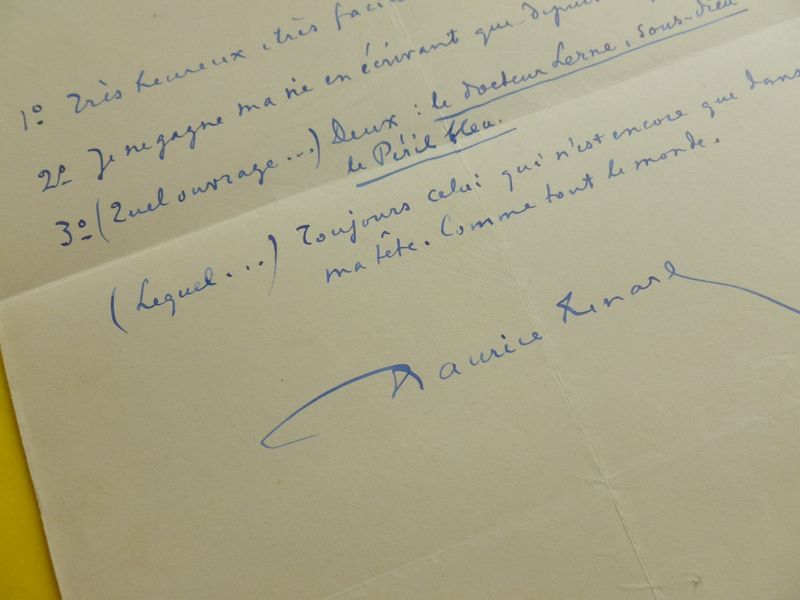 1º Très heureux, très faci
2º Je ne gagne ma vie en écrivant que depuis
3º (Quel ouvrage...) Deux : le docteur Lerne, sous-dieu
le Péril bleu.
(Lequel...) Toujours celui qui n'est encore que dans
ma tête. Comme tout le monde.
Maurice Renard